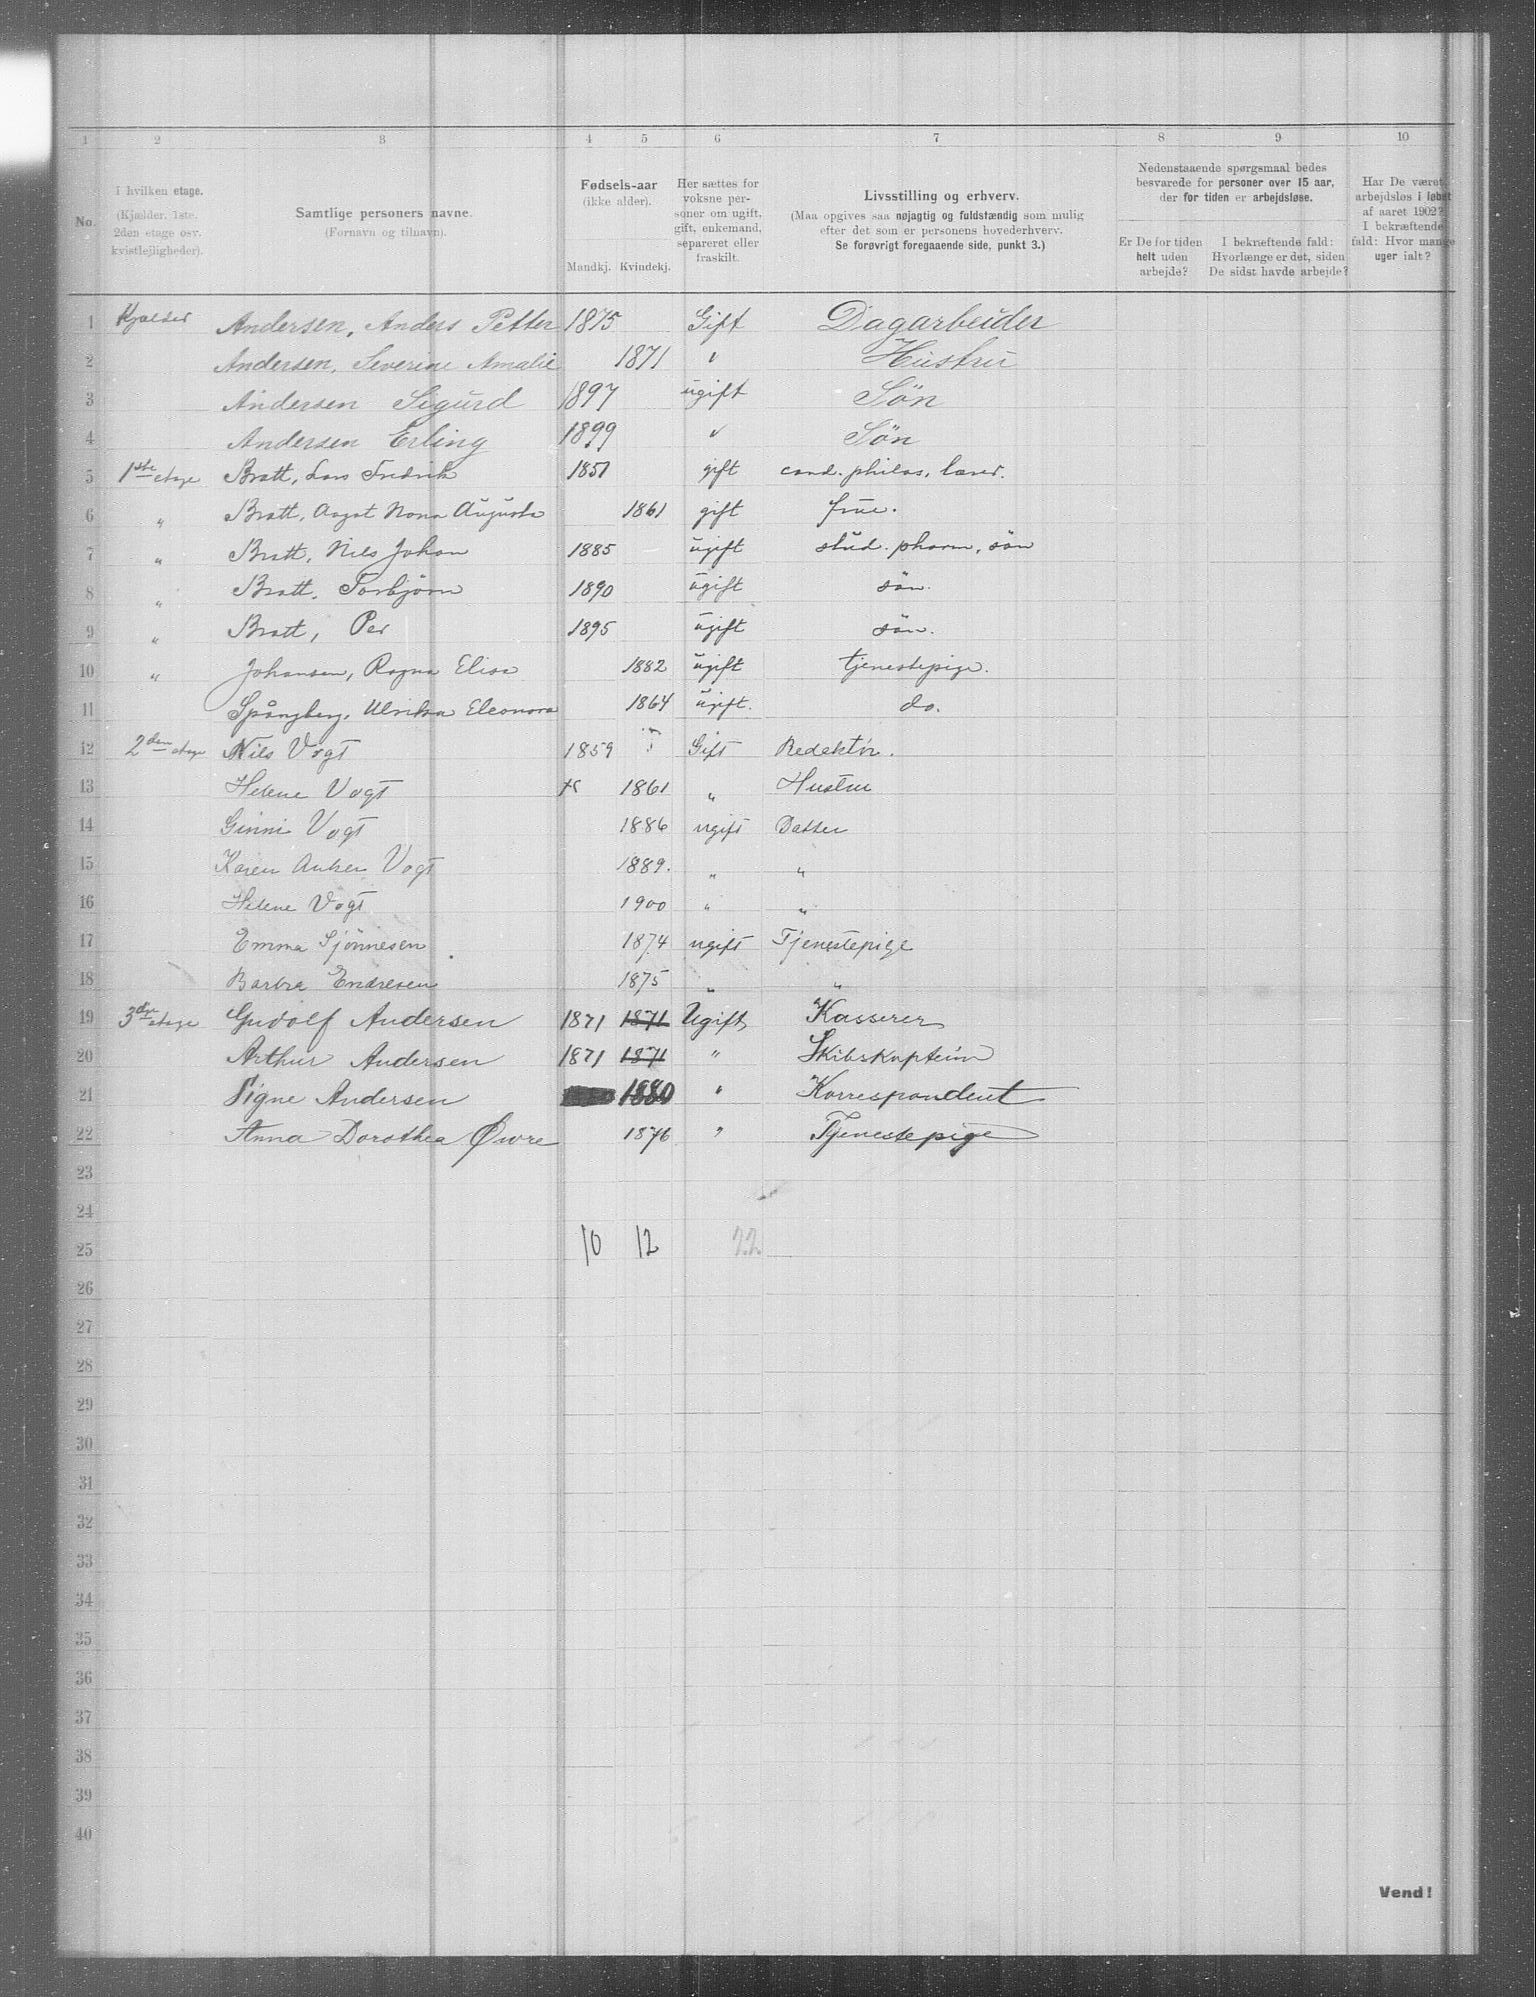 1 2 3 4 5 6 7 8 9 10
No.
I hvilken etage.
(Kjælder, 1ste,
2den etage osv.
kvistlejligheder).
Samtlige personers navne.
(Fornavn og tilnavn).
Fødsels-aar
(ikke alder).
Mandkj. Kvindekj.
Her sættes for
voksne per-
soner om ugift,
gift, enkemand,
separeret eller
fraskilt.
Livsstilling og erhverv.
(Maa opgives saa nøjagtig og fuldstændig som mulig
efter det som er personens hovederhverv.
Se forøvrigt foregaaende side, punkt 3.)
Nedenstaaende spørgsmaal bedes
besvarede for personer over 15 aar,
der for tiden er arbejdsløse.
Er De for tiden
helt uden
arbejde?
I bekræftende fald:
Hvorlænge er det, siden
De sidst havde arbejde?
Har De været
arbejdsløs i løbet
af aaret 1902?
I bekræftende
fald: Hvor mange
uger ialt?
1 Kjælder Andersen, Anders Petter 1875 Gift Dagarbeider
2 Andersen, Severine Amalie 1871 " Hustru
3 Andersen Sigurd 1897 ugift Søn
4 Andersen Erling 1899 " Søn
5 1ste etage Bratt, Lars Fredrik 1851 gift cand. philos, lærer.
6 " Bratt, Aagot Nona Augusta 1861 gift frue.
7 " Bratt, Nils Johan 1885 ugift stud. pharm, søn
8 " Bratt, Torbjørn 1890 ugift søn.
9 " Bratt, Per 1895 ugift søn.
10 " Johansen, Ragna Elisa 1882 ugift tjenestepige.
11 Spångberg, Ulrikka Eleonora 1864 ugift. do.
12 2den etage Nils Vogt 1859 Gift Redaktør.
13 Helene Vogt 1861 " Hustru
14 Ginni Vogt 1886 ugift Datter
15 Karen Anker Vogt 1889. " "
16 Helene Vogt 1900 " "
17 Emma Sjönnesen 1874 ugift Tjenestepige
18 Barbra Endresen 1875 " "
19 3die etage Gudolf Andersen 1871 1871 Ugift Kasserer
20 Arthur Andersen 1871 1871 " Skibskaptein
21 Signe Andersen 1880 " Korrespondent
22 Anna Dorothea Øvre 1876 " Tjenestepige
23
24
25 10 12 22
26
27
28
29
30
31
32
33
34
35
36
37
38
39
40
Vend!